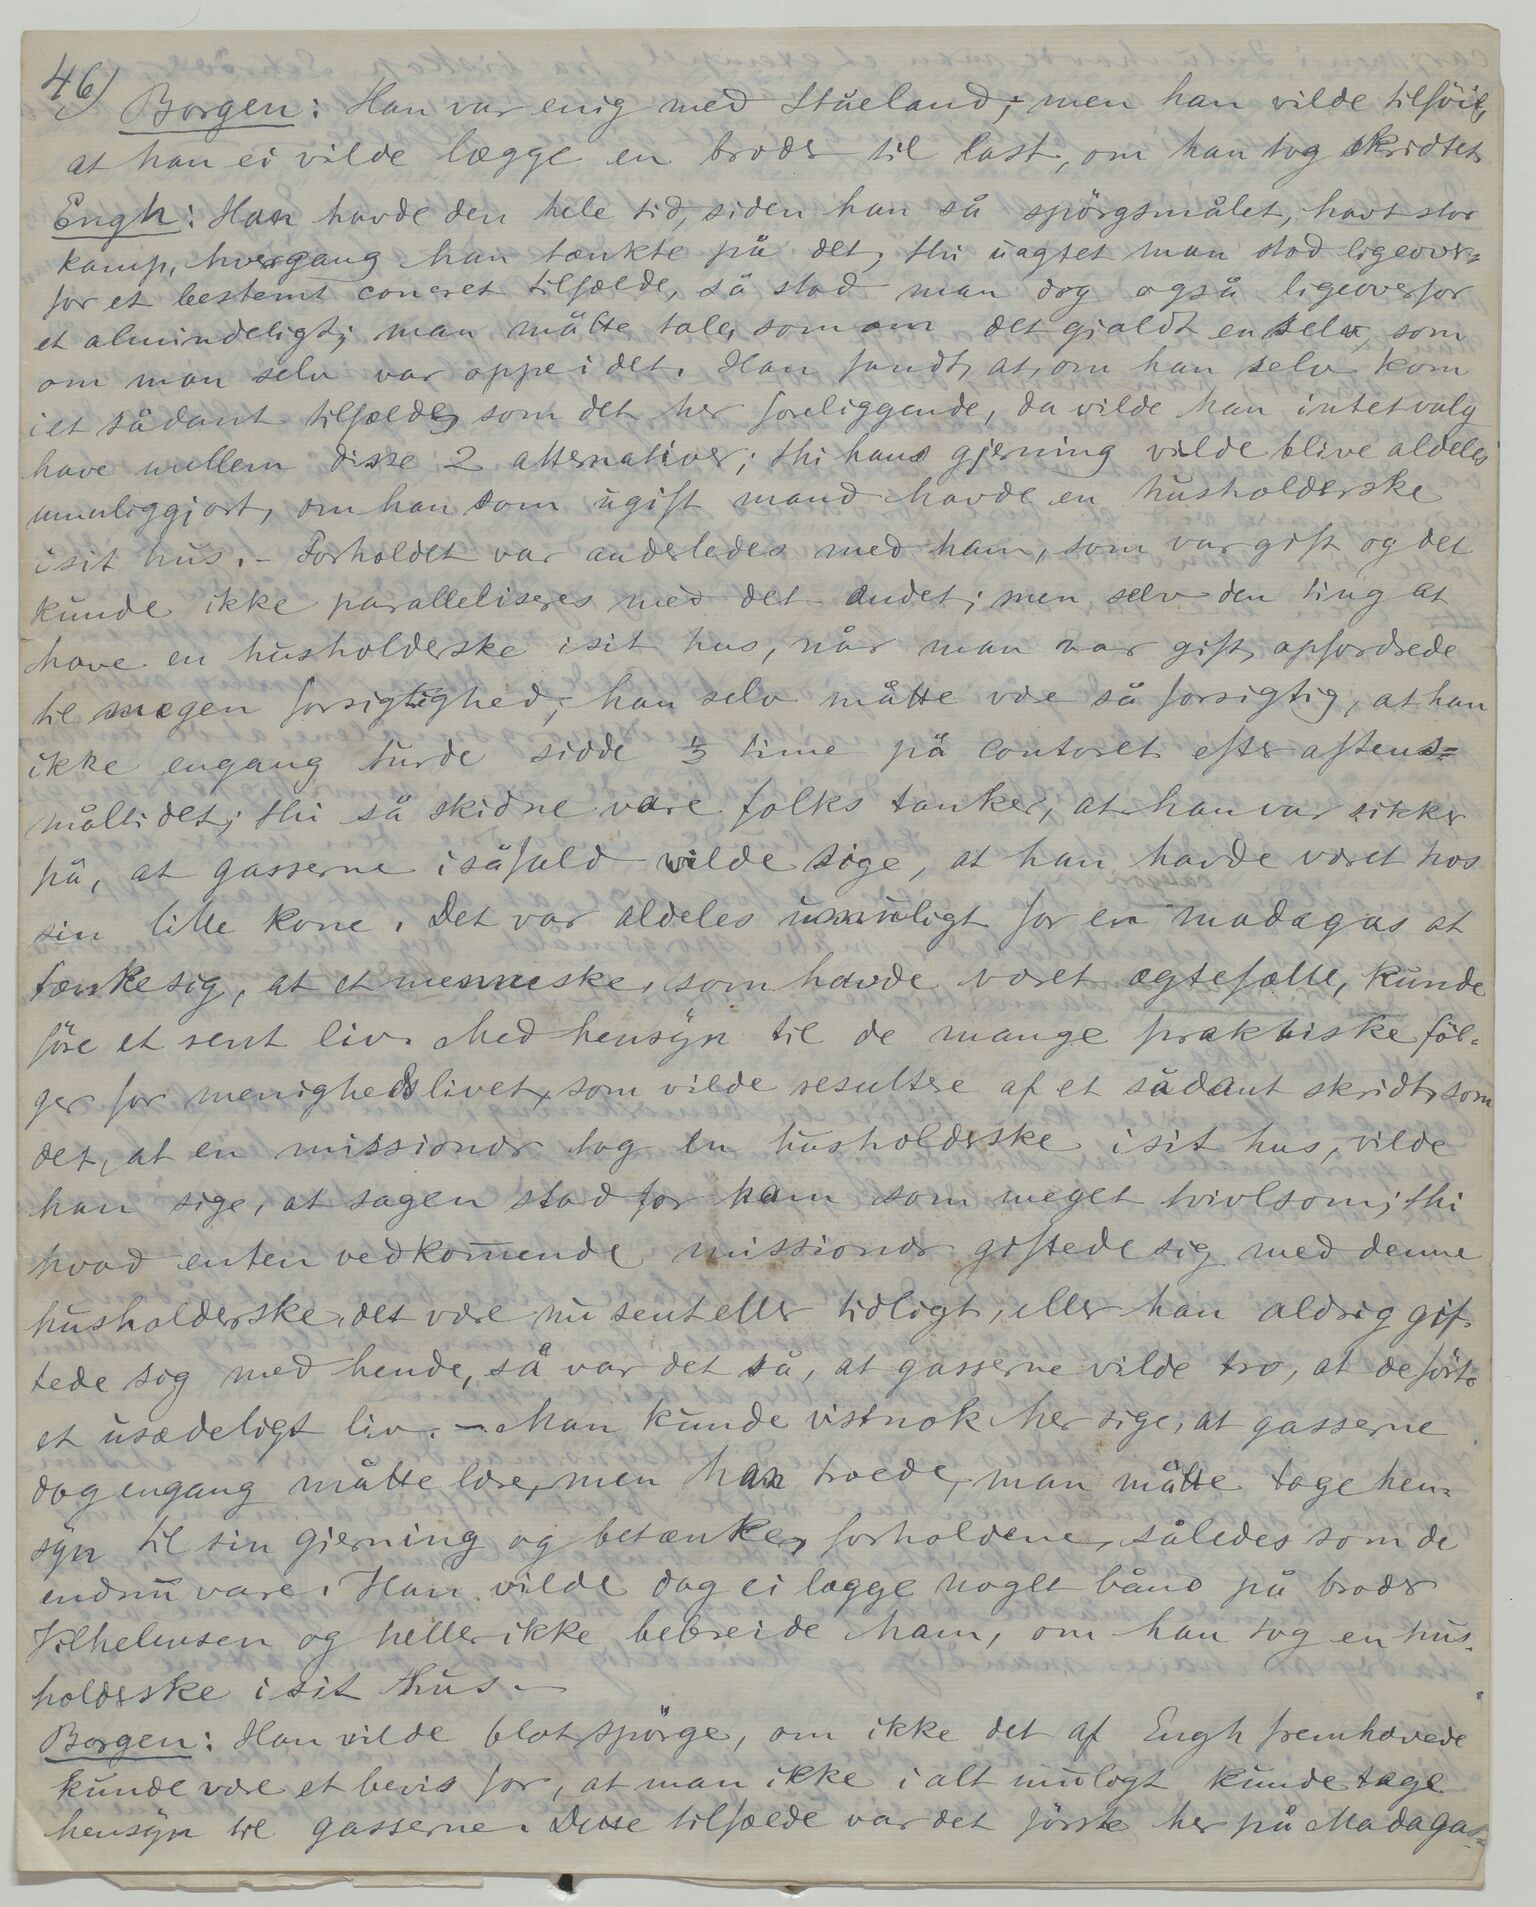 46)
Borgen: Han var enig med Ståeland; men han vilde tilföie,
at han ei vilde lægge en broder til last, om han tog skridtet
Engh: Han havde den hele tid, siden han så spörgsmålet, havt stor
kamp, hvergang han tænkte på det, thi uagtet man stod ligeover=
for et bestemt concret tilfælde, så stod man dog også ligeoverfor
et almindeligt; man måtte tale, som om det gjaldt en selv, som
om man selv var oppe i det. Han fandt, at, om han selv kom
i et sådant tilfælde, som det her foreliggende, da vilde han intet valg
have mellem disse 2 alternativer; thi hans gjerning vilde blive aldeles
umuliggjort, om han som ugift mand havde en husholderske
i sit hus. - Forholdet var anderledes med ham, som var gift og det
kunde ikke paralleliseres med det andet; men selv den ting at
have en husholderske i sit hus, når man var gift, opfordrede
til megen forsigtighed; han selv måtte være så forsigtig, at han
ikke engang turde sidde ½ time på contoret efter aftens=
måltidet; thi så skidne vare folks tanker, at han var sikker
på, at gasserne isåfald vilde sige, at han havde været hos
sin lille kone. Det var aldeles umuligt for en madagas at
tænke sig, at et menneske, som havde været ægtefælle, kunde
före et rent liv. Med hensyn til de mange praktiske föl=
ger for menighedslivet, som vilde resultere af et sådant skridt, som
det, at en missionær tog en husholderske i sit hus, vilde
han sige, at sagen stod for ham som meget tvivlsom; thi
hvad enten vedkommende missionær giftede sig med denne
husholderske, det være nu sent eller tidligt, eller han aldrig gif=
tede sig med hende, så var det så, at gasserne vilde tro, at de förte
et usædeligt liv. - Man kunde vistnok her sige, at gasserne
dog engang måtte lære, men han troede, man måtte tage hen=
syn til sin gjerning og betænke, forholdene, således som de
endnu vare. Han vilde dog ei lægge noget bånd på broder
Vilhelmsen og heller ikke bebreide ham, om han tog en hus=
holderske i sit hus. -
Borgen: Han vilde blot spörge, om ikke det af Engh fremhævede
kunde være et bevis for, at man ikke i alt muligt kunde tage
hensyn til gasserne. Dette tilfælde var det förste her på Madagas=